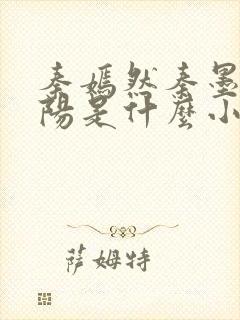 秦嫣然秦墨
陽是什麼小
萨姆特